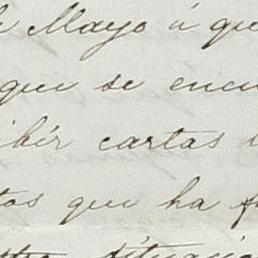 de Mayo á que
que se encu
ibír cartas
tos que ha f
situació